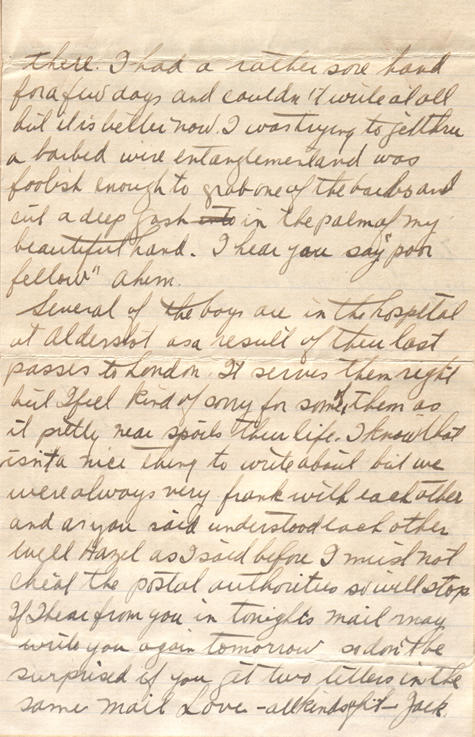 there. I had a rather sore hand
for a few days and couldn't write at all
but it is better now. I was trying to get thru
a barbed wire entanglement and was
foolish enough to grab one of the barbs and
cut a deep gash into in the palm of my
beautiful hand. I hear you say "poor
fellow" ahem.
Several of the boys are in the hospital
at Aldershot as a result of their last
passes to London. It serves them right
but I feel kind of sorry for some of them as
it pretty near spoils their life. I know that
isn't a nice thing to write about but we
were always very frank with each other
and as you said understood each other
Well Hazel as I said before I must not
cheat the postal authorities so will stop
If I hear from you in tonights mail may
write you again tomorrow so don't be
surprised if you get two letters in the
same mail Love - all kinds of it - Jack.